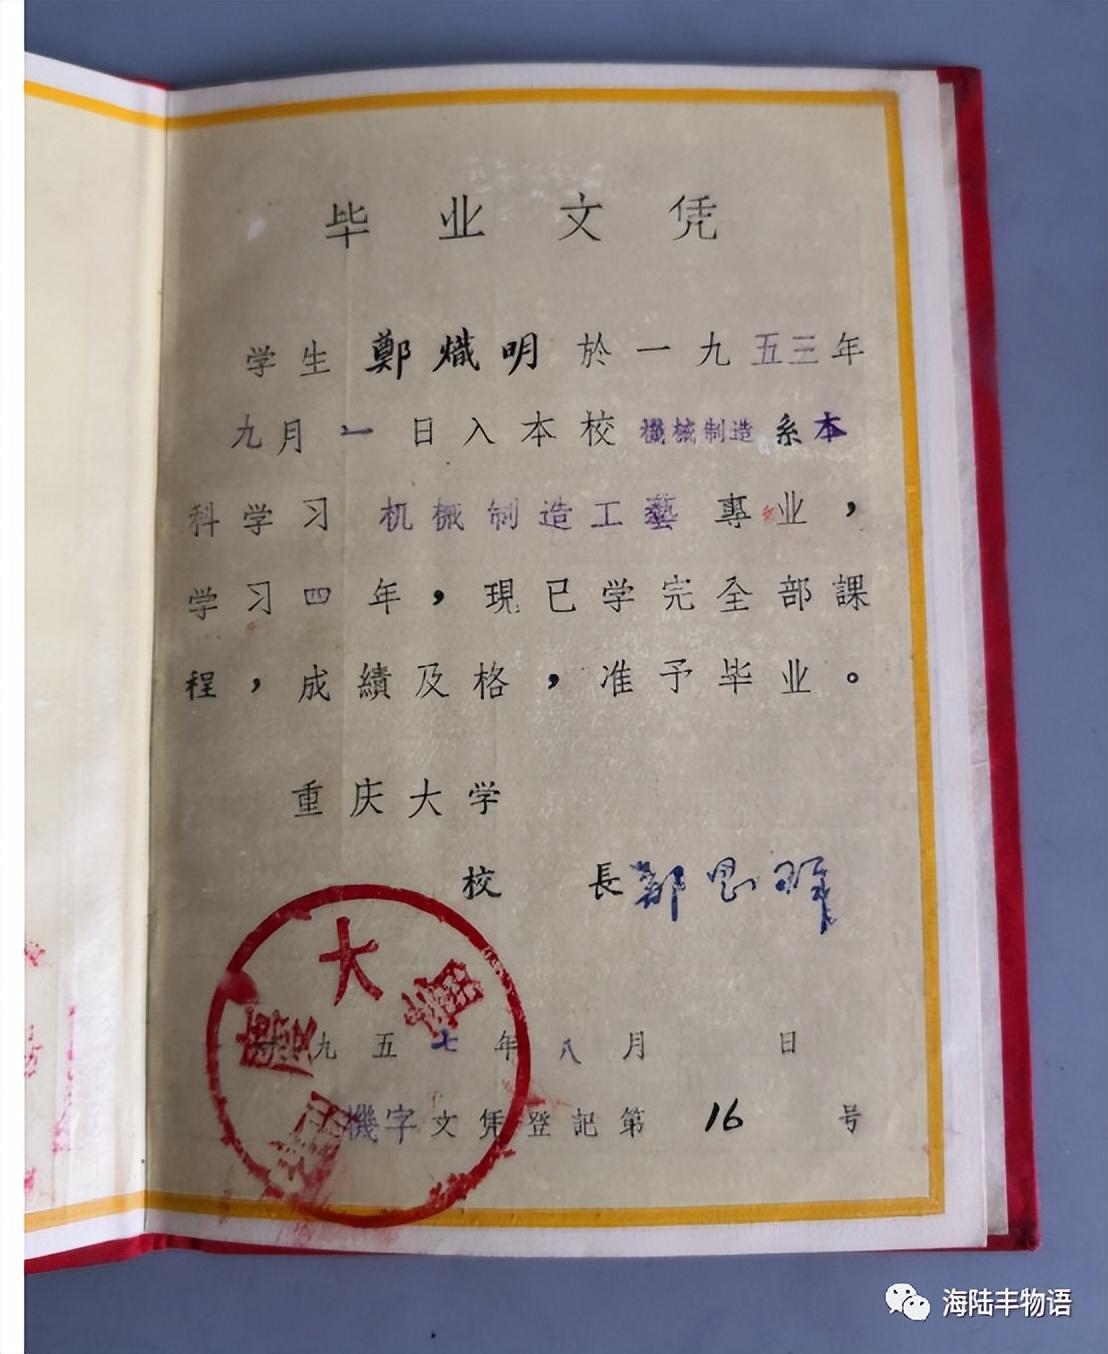 毕业文凭
学生鄭熾明於一九五三年
九月一日入本校機械制造系本
科学习机械制造工藝專业，
学习四年，現已学完全部課
程，成績及格，准予毕业。
重庆大学
校長鄭思群
一九五七年八月 日
機字文凭登記第16号
大學
重慶
海陆丰物语